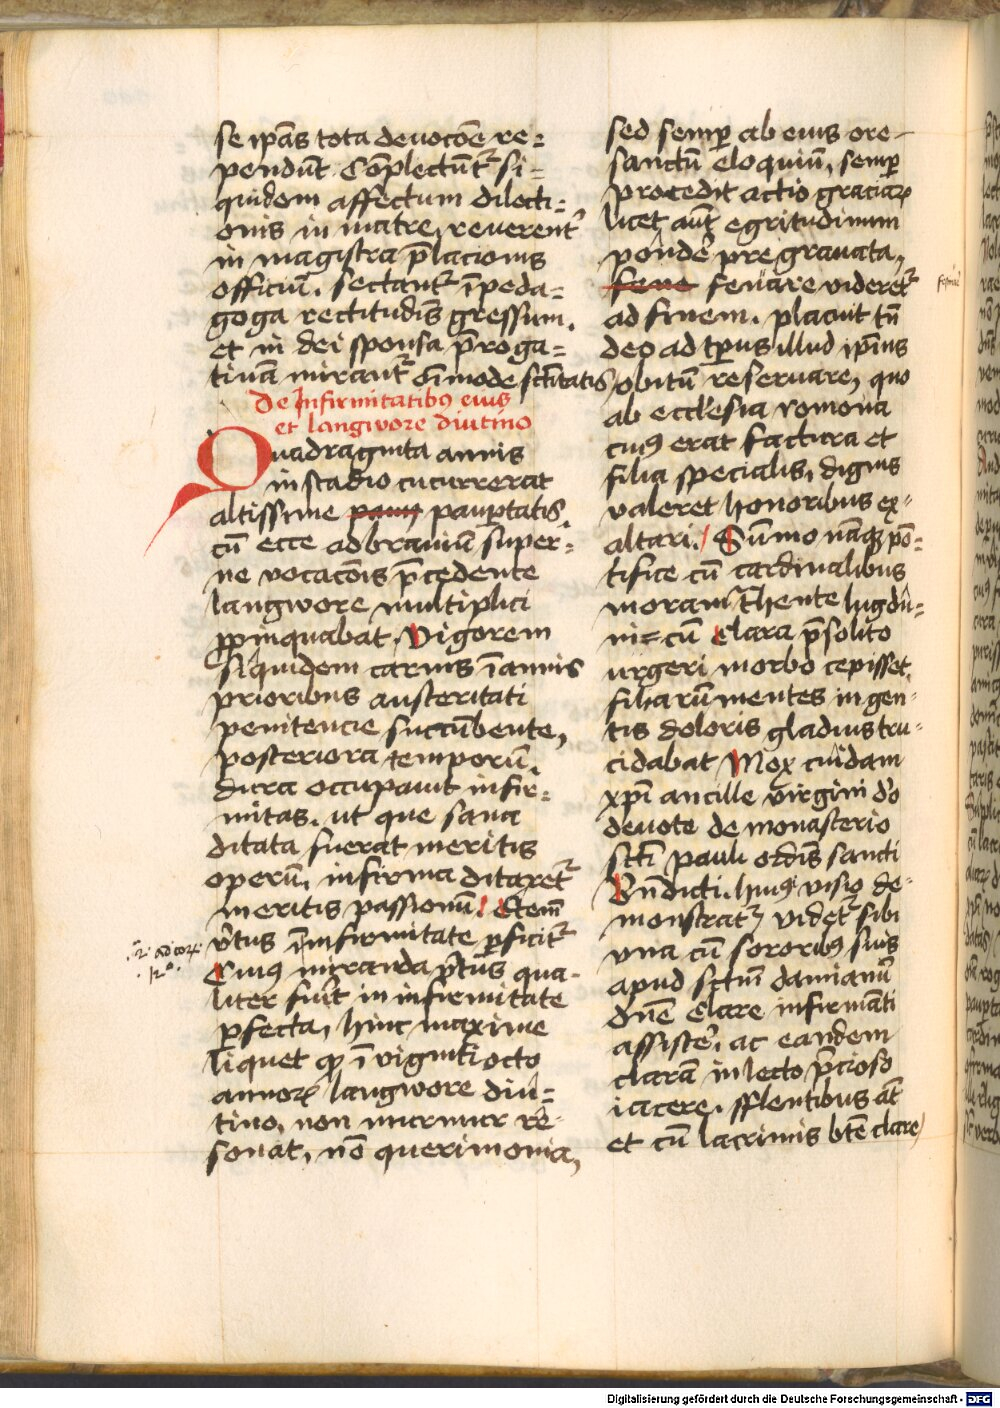 se ip̄as tota deuoc̄oē re=
pendūt Cōplectūt᷑ si=
quidem affectum dilecti=
onis in matre, reuerent᷑
in magistra p̄lacionis
officiū. sectant᷑ ī peda=
goga rectitudīs gressum.
et in dei sponsa p̄roga=
tiuā mirant᷑ oīmode sctītatis
De Infirmitatibꝫ eius
et langwore diutino
Quadraginta annis
in stadio cucurrerat
altissime paup̄tatis,
cū ecce ad brauiū super=
ne vocac̄onis p̄cedente
langwore multiplici
ꝓpinquabat, Vigorem
siquidem carnis ī annis
prioribus austeritati
penitencie succūbente,
posteriora temporū.
dura occupauit infir=
mitas. ut que sana
ditata fuerat meritis
operū, infirma ditaret᷑
meritis passionū. Etem̄
v̄tus ī infirmitate ꝑficit᷑
.2. ad cor.
.12°.
Cuiꝰ miranda v̄tus qua-
liter fuīt in infirmitate
ꝑfecta, hinc maxime
liquet ꝙ ī viginti octo
annoꝝ langwore diu=
tino, non murmur re-
sonat, nō querimonia,
sed semꝑ ab eius ore
sanctū eloquiū, semꝑ
procedit actio graciaꝝ
licet aūt egritudinum
pondē pregrauata,
fenare videret᷑
ad finem. placuit tn̄
deo ad tp̄us illud ip̄ius
obitū reseruare, quo
ab ecclesia romona
cuiꝰ erat factura et
filia specialis, dignis
valeret honoribus ex-
altari. Sūmo nāqꝫ pō=
tifice cū cardinalibus
moram t̄hente lugdū=
ni= cū Clara p̄solito
urgeri morbo cepisset,
filiarū mentes ingen-
tis doloris gladius tru-
cidabat Mox cuidam
xp̄i ancille virgini d̄o
deuote de monasterio
sctī pauli ordīs sancti
Bn̄dicti. huiꝰ visio de-
monstrat᷑, videt᷑ sibi
vna cū sororibꝫ suis
apud sctūm damianū
dn̄e Clare infirmāti
assistē, ac eandem
clarā in lecto p̄cioso
iacere, fflentibus āt
et cū lacrimis bt̄e clare